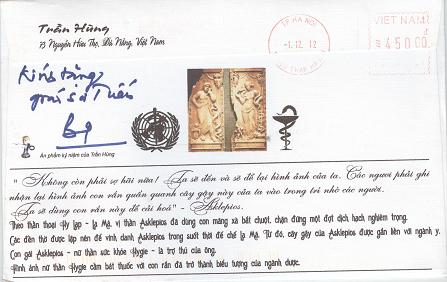 Trần Hùng
73 Nguyễn Hữu Thọ, Đà Nẵng, Việt Nam
TP. HA NOI
-1.12.12
VIET NAM
đ
4500.0
Kính tặng
Ấn phẩm kỷ niệm của Trần Hùng
" Không còn phải sợ hãi nữa! Ta sẽ đến và sẽ để lại hình ảnh của ta. Các ngươi phải ghi
nhận lại hình ảnh con rắn quấn quanh cây gậy này của ta vào trong trí nhớ các ngươi.
Ta sẽ dùng con rắn này để cải hoá" - Asklepios.
Theo thần thoại Hy Lạp - La Mã, vị thần Asklepios đã dùng con mãng xà bắt chuột, chặn đứng một đợt dịch hạch nghiêm trọng.
Các đền thờ được lập nên để vinh danh Asklepios trong suốt thời đế chế La Mã. Từ đó, cây gậy của Asklepios được gắn liền với ngành y.
Con gái Asklepios - nữ thần sức khỏe Hygie - là trợ thủ của ông.
Hình ảnh nữ thần Hygie cầm bát thuốc với con rắn đã trở thành biểu tượng của ngành dược.